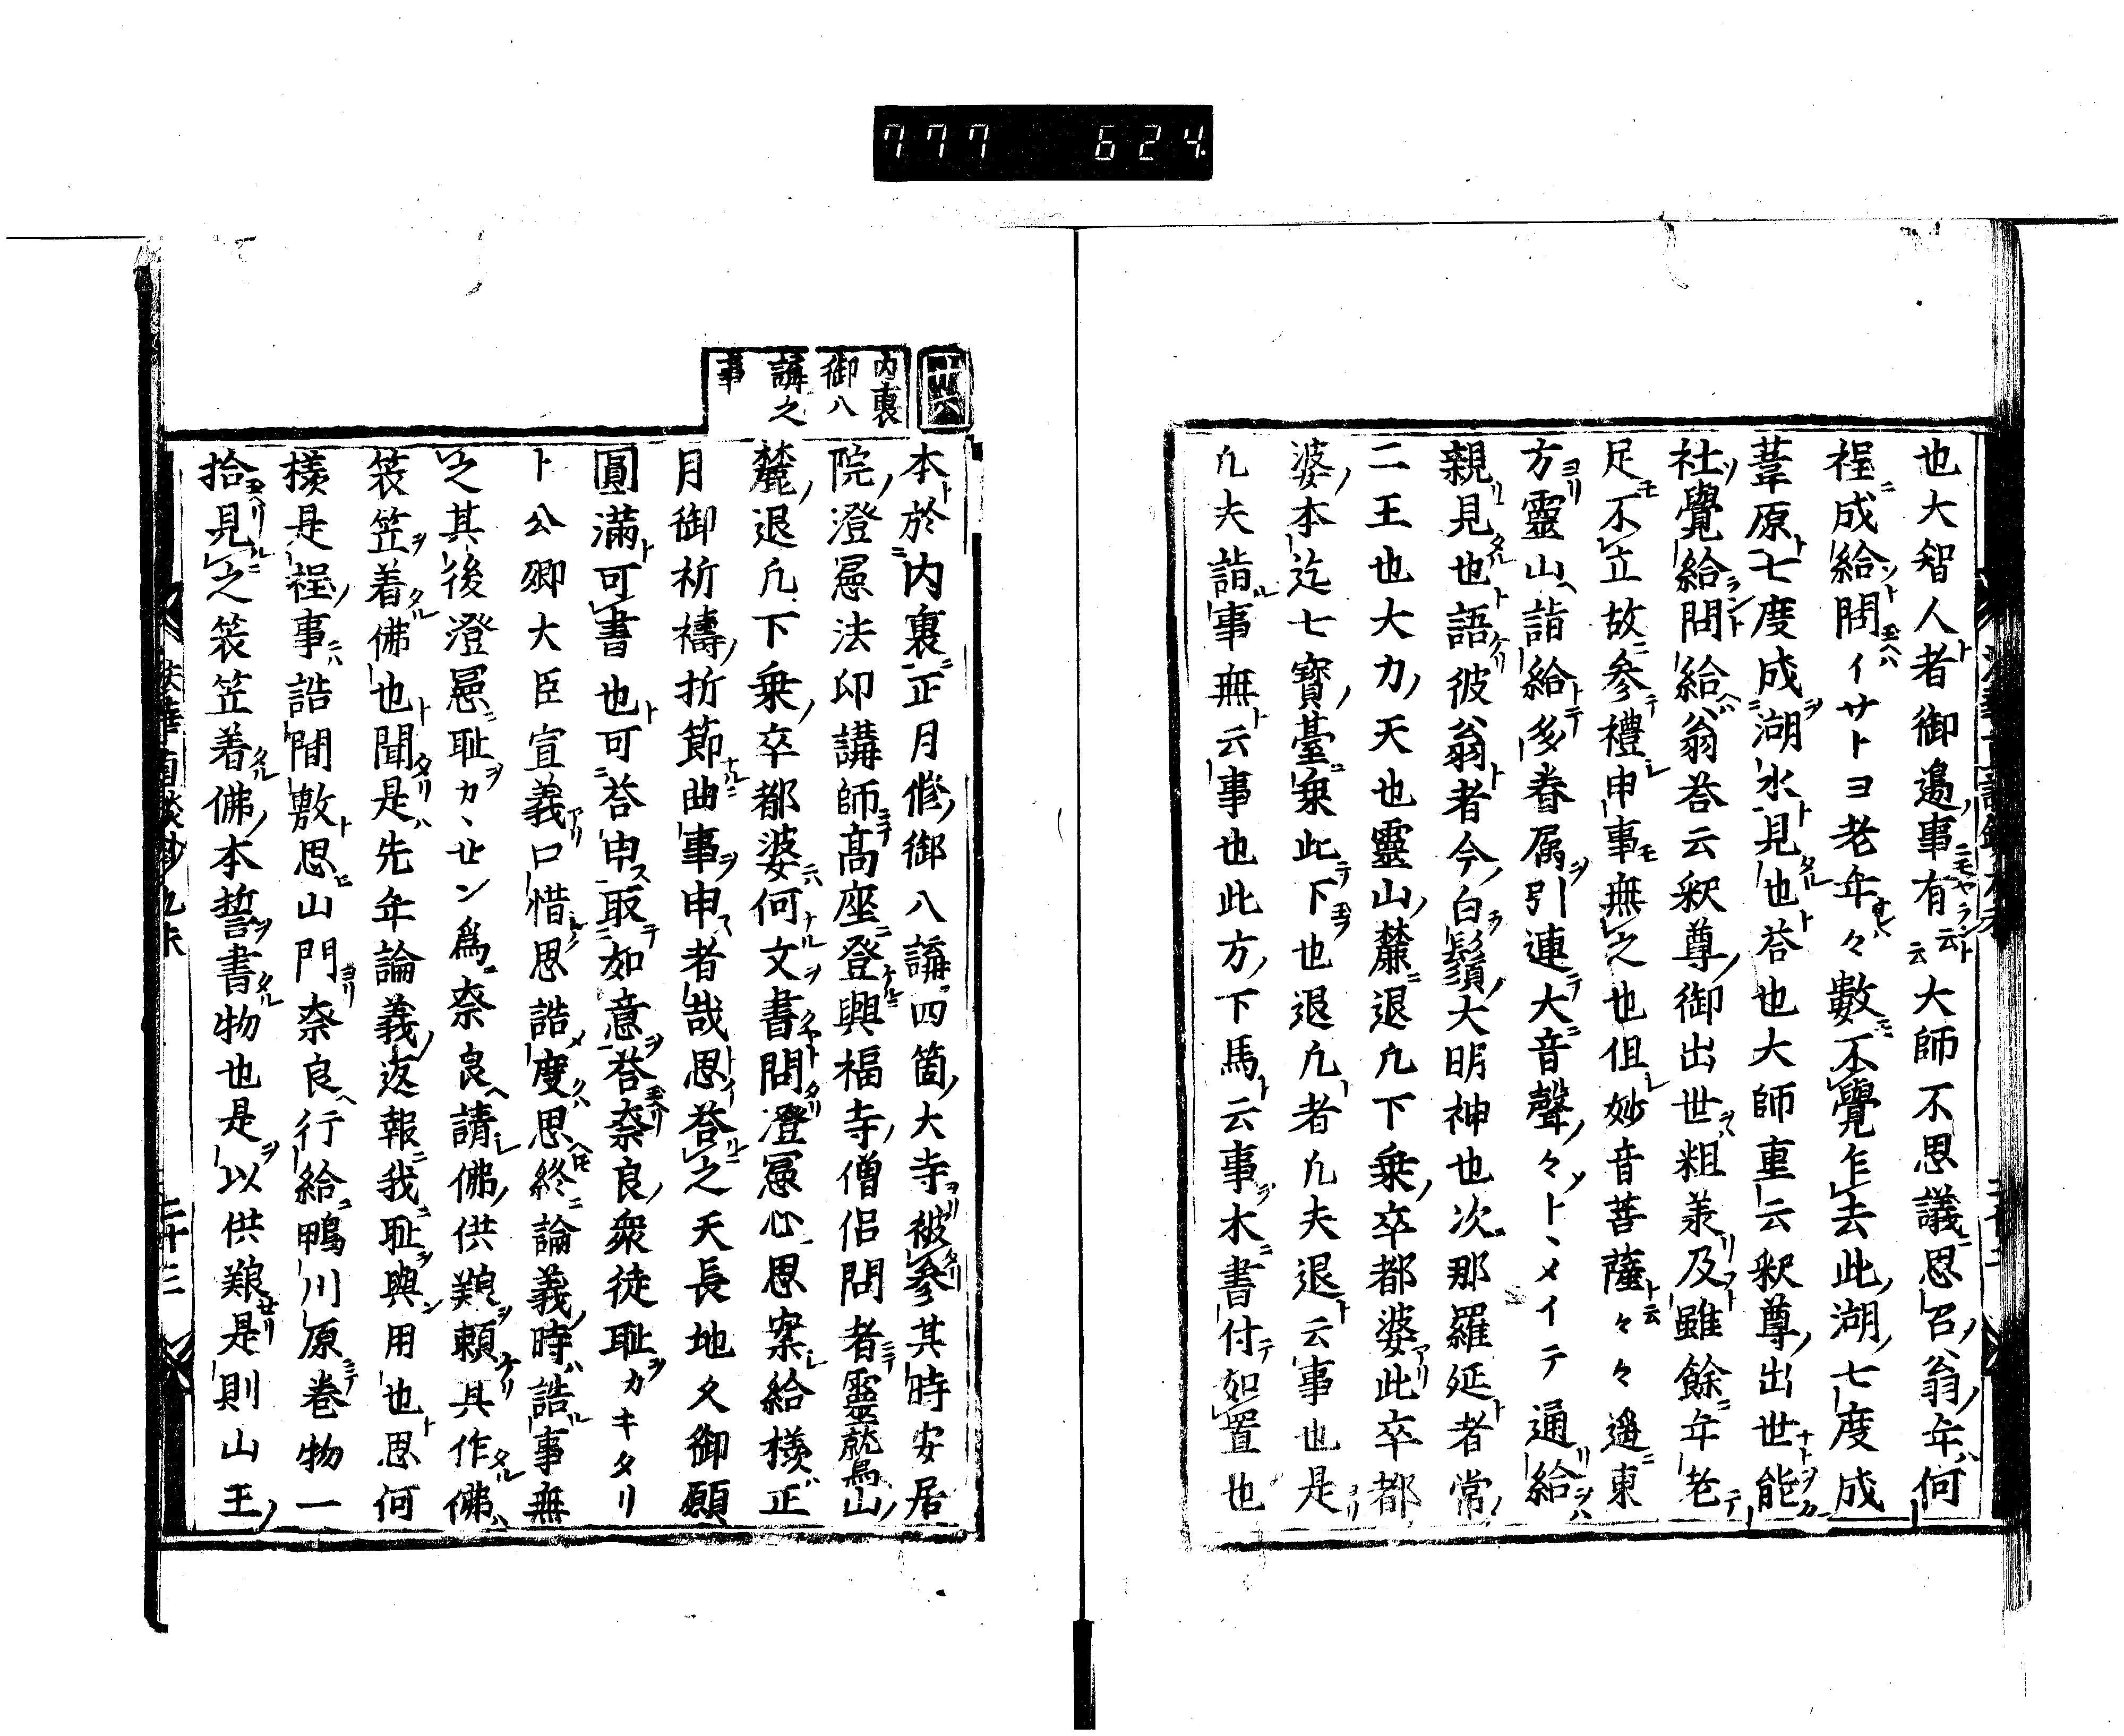 777 624
也大智人者御邉事有云云大師不思議思召翁年何
程成給問イサトヨ老年々數不覺乍去此湖七度成
葦原七度成湖水見也荅也大師重云釈尊出世能
社覺給問給翁荅云釈尊御出世粗羕及雖餘年老
足不立故参禮申事無之也伹妙音菩薩々々遥東
方靈山詣給多眷属引連大音聲々トヽメイテ通給
親見也語彼翁者今白鬚大明神也次那羅延者常
二王也大力天也靈山麓退凢下乗卒都婆此卒都
婆本迄七寳臺乗此下也退凢者凢夫退云事也是
凢夫詣事無云事也此方下馬云事木書付如置也
内裏
御八
講之
事
本於内裏正月修御八講四箇大寺被参其時安居
院澄憲法印講師髙座登興福寺僧侶問者靈鷲山
麓退凢下乗卒都婆何文書問澄憲心思案給様正
月御祈禱折節曲事申者哉思荅之天長地久御願
圓滿可書也可荅申取如意荅奈良衆徒耻カキタリ
ト公卿大臣宣義口惜思誥度思終論義時誥事無
之其後澄憲耻カヽセン爲奈良請佛供頼具作佛
笠着佛也聞是先年論義返報我耻與用也思何
様是程事誥間敷思山門奈良行給鴨川原巻物一
拾見之笠着佛本誓書物也是以供是則山王